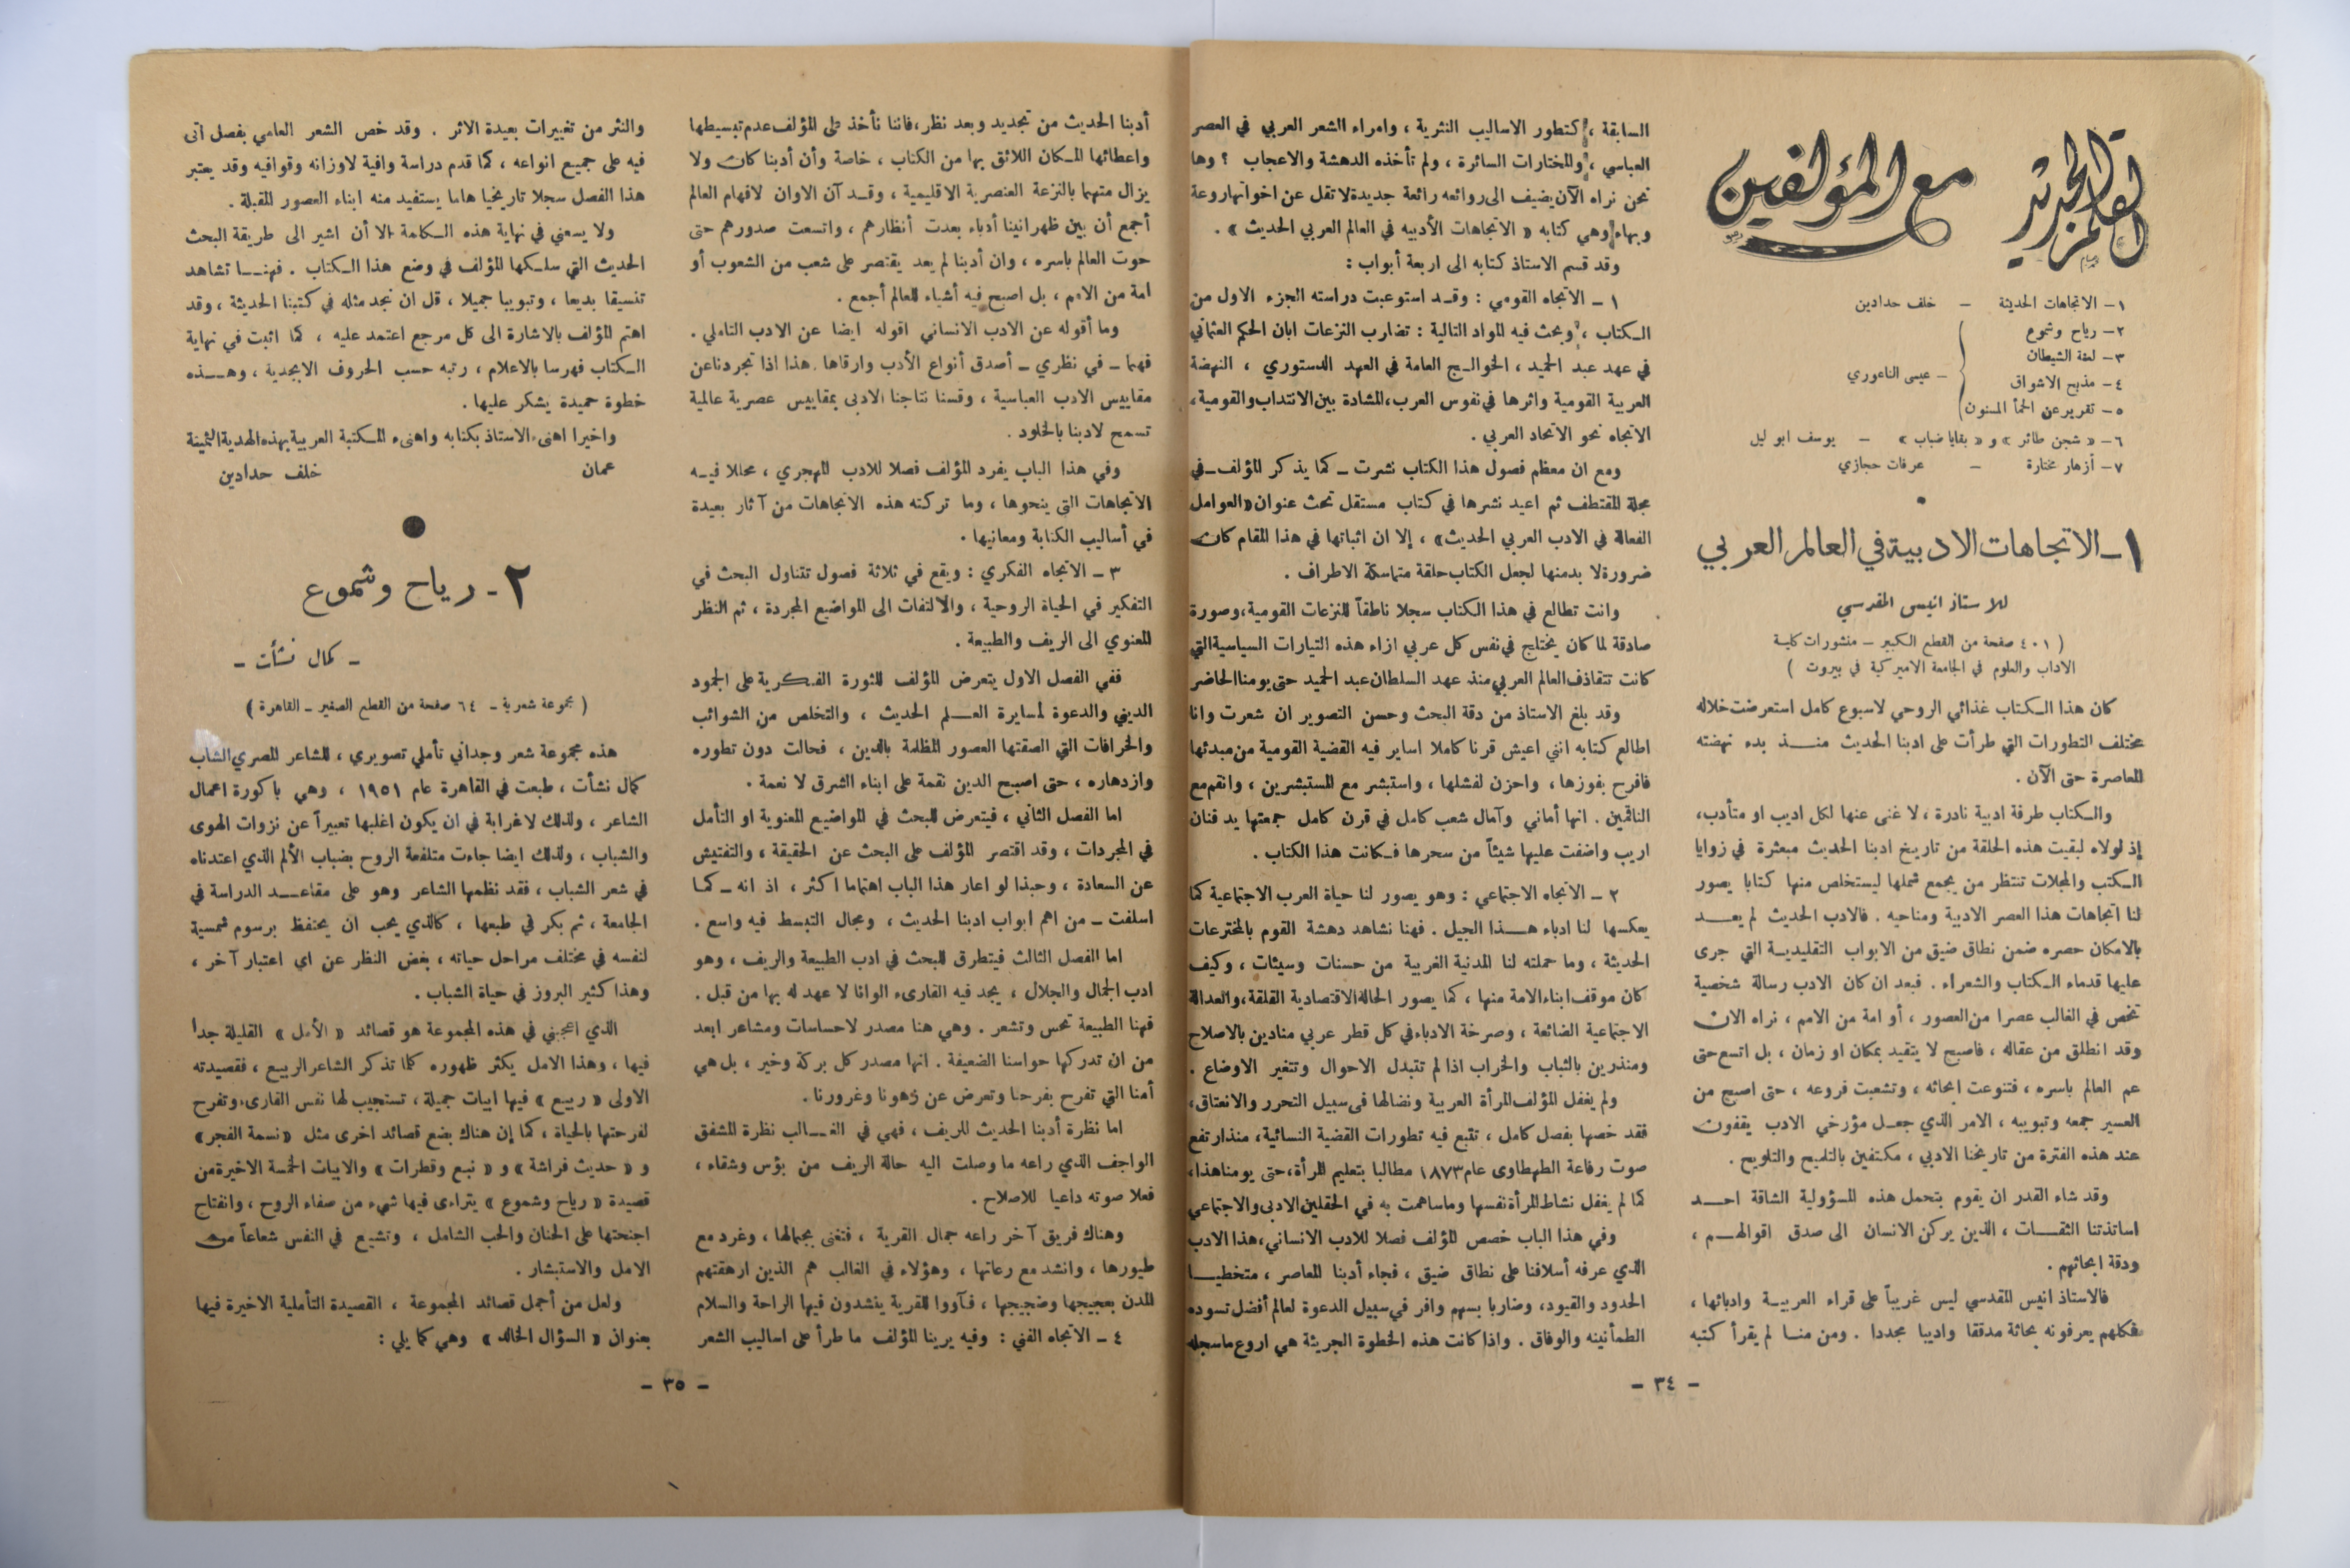 القلم الجديد
مع المؤلفين
١ـ الاتجاهات الحديثة ـ خلف حدادين
٢ـ رياح وشموع
٣ـ لعنة الشيطان
٤ـ مذبح الاشواق
ـ عيسى الناعوري
٥ـ تقرير عن الحمأ المسنون
٦ـ « شجن طائر » و « بقايا ضباب » ـ يوسف ابو ليل
٧ـ أزهار مختارة ـ عرفات حجازي
١ـ الاتجاهات الادبية في العالم العربي
للاستاذ انيس المقدسي
( ٤٠١ صفحة من القطع الكبير ـ منشورات كلية
الاداب والعلوم في الجامعة الاميركية في بيروت )
كان هذا الكتاب غذائي الروحي لاسبوع كامل استعرضت خلاله
مختلف التطورات التي طرأت على ادبنا الحديث منذ بدء نهضته
المعاصرة حتى الآن .
والكتاب طرفة ادبية نادرة ، لا غنى عنها لكل اديب او متأدب،
إذ لولاه لبقيت هذه الحلقة من تاريخ ادبنا الحديث مبعثرة في زوايا
الكتب والمجلات تنتظر من يجمع شملها ليستخلص منها كتابا يصور
لنا اتجاهات هذا العصر الادبية ومناحيه . فالادب الحديث لم يعد
بالامكان حصره ضمن نطاق ضيق من الابواب التقليدية التي جرى
عليها قدماء الكتاب والشعراء . فبعد ان كان الادب رسالة شخصية
تخص في الغالب عصرا من العصور ، أو امة من الامم ، نراه الان
وقد انطلق من عقاله ، فاصبح لا يتقيد بمكان او زمان ، بل اتسع حتى
عم العالم باسره ، فتنوعت ابحاثه ، وتشعبت فروعه ، حتى اصبح من
العسير جمعه وتبويبه ، الامر الذي جعل مؤرخي الادب يقفون
عند هذه الفترة من تاريخنا الادبي ، مكتفين بالتلميح والتلويح .
وقد شاء القدر ان يقوم بتحمل هذه المسؤولية الشاقة احد
اساتذتنا الثقات ، الذين يركن الانسان الى صدق اقوالهم ،
ودقة ابحاثهم .
فالاستاذ انيس المقدسي ليس غريباً على قراء العربية وادبائها ،
فكلهم يعرفونه بحاثة مدققا واديبا مجددا . ومن منا لم يقرأ كتبه
السابقة ، كتطور الاساليب النثرية ، وامراء الشعر العربي في العصر
العباسي ، والمختارات السائرة ، ولم تأخذه الدهشة والاعجاب ؟ وها
نحن نراه الآن يضيف الى روائعه رائعة جديدة لا تقل عن اخواتها روعة
وبهاء وهي كتابه « الاتجاهات الأدبيه في العالم العربي الحديث » .
وقد قسم الاستاذ كتابه الى اربعة أبواب :
١ ـ الاتجاه القومي : وقد استوعبت دراسته الجزء الاول من
الكتاب ، وبحث فيه المواد التالية : تضارب النزعات ابان الحكم العثماني
في عهد عبد الحميد ، الخوالج العامة في العهد الدستوري ، النهضة
العربية القومية واثرها في نفوس العرب، المشادة بين الانتداب والقومية،
الاتجاه نحو الاتحاد العربي .
ومع ان معظم فصول هذا الكتاب نشرت ـ كما يذكر المؤلف ـ في
مجلة المقتطف ثم اعيد نشرها في كتاب مستقل تحت عنوان «العوامل
الفعالة في الادب العربي الحديث» ، إلا ان اثباتها في هذا المقام كان
ضرورة لا بد منها لجعل الكتاب حلقة متماسكة الاطراف .
وانت تطالع في هذا الكتاب سجلا ناطقاً للنزعات القومية، وصورة
صادقة لما كان يختلج في نفس كل عربي ازاء هذه التيارات السياسية التي
كانت تتقاذف العالم العربي منذ عهد السلطان عبد الحميد حتى يومنا الحاضر
وقد بلغ الاستاذ من دقة البحث وحسن التصوير ان شعرت وانا
اطالع كتابه انني اعيش قرنا كاملا اساير فيه القضية القومية من مبدئها
فافرح بفوزها ، واحزن لفشلها ، واستبشر مع المستبشرين ، وانقم مع
الناقمين . انها أماني وآمال شعب كامل في قرن كامل جمعتها يد فنان
اريب واضفت عليها شيئاً من سحرها فكانت هذا الكتاب .
٢ ـ الاتجاه الاجتماعي : وهو يصور لنا حياة العرب الاجتماعية كما
يعكسها لنا ادباء هذا الجيل . فهنا نشاهد دهشة القوم بالمخترعات
الحديثة ، وما حملته لنا المدنية الغربية من حسنات وسيئات ، وكيف
كان موقف ابناء الامة منها ، كما يصور الحالة الاقتصادية القلقة، والعدالة
الاجتماعية الضائعة ، وصرخة الادباء في كل قطر عربي منادين بالاصلاح
ومنذرين بالثباب والخراب اذا لم تتبدل الاحوال وتتغير الاوضاع .
ولم يغفل المؤلف المرأة العربية ونضالها في سبيل التحرر والانعتاق،
فقد خصها بفصل كامل ، تتبع فيه تطورات القضية النسائية، منذ ارتفع
صوت رفاعة الطهطاوى عام ١٨٧٣ مطالبا بتعليم المرأة، حتى يومنا هذا،
كما لم يغفل نشاط المرأة نفسها وما ساهمت به في الحقلين الادبى والاجتماعي
وفي هذا الباب خصص المؤلف فصلا للادب الانساني، هذا الادب
الذي عرفه أسلافنا على نطاق ضيق ، فجاء أدبنا المعاصر ، متخطيا
الحدود والقيود، وضاربا بسهم وافر في سبيل الدعوة لعالم أفضل تسوده
الطمأنينه والوفاق . واذا كانت هذه الخطوة الجريئة هي اروع ما سجله
ـ ٣٤ ـ
أدبنا الحديث من تجديد وبعد نظر، فاننا نأخذ على المؤلف عدم تبسيطها
واعطائها المكان اللائق بها من الكتاب ، خاصة وأن أدبنا كان ولا
يزال متهما بالنزعة العنصرية الاقليمية ، وقد آن الاوان لافهام العالم
أجمع أن بين ظهرانينا أدباء بعدت أنظارهم ، واتسعت صدورهم حتى
حوت العالم باسره ، وان أدبنا لم يعد يقتصر على شعب من الشعوب أو
امة من الامم ، بل اصبح فيه أشياء للعالم أجمع .
وما أقوله عن الادب الانساني اقوله ايضا عن الادب التاملي .
فهما ـ في نظري ـ أصدق أنواع الأدب وارقاها هذا اذا تجردنا عن
مقاييس الادب العباسية ، وقسنا نتاجنا الادبى بمقاييس عصرية عالمية
تسمح لادبنا بالخلود .
وفي هذا الباب يفرد المؤلف فصلا للادب المهجري ، محللا فيه
الاتجاهات التي ينحوها ، وما تركته هذه الاتجاهات من آثار بعيدة
في أساليب الكتابة ومعانيها .
٣ ـ الاتجاه الفكري : ويقع في ثلاثة فصول تتناول البحث في
التفكير في الحياة الروحية ، والالتفات الى المواضيع المجردة ، ثم النظر
المعنوي الى الريف والطبيعة .
ففي الفصل الاول يتعرض المؤلف للثورة الفكرية على الجمود
الديني والدعوة لمسايرة العلم الحديث ، والتخلص من الشوائب
والخرافات التي الصقتها العصور المظلمة بالدين ، فحالت دون تطوره
وازدهاره ، حتى اصبح الدين نقمة على ابناء الشرق لا نعمة .
اما الفصل الثاني ، فيتعرض للبحث في المواضيع المعنوية او التأمل
في المجردات ، وقد اقتصر المؤلف على البحث عن الحقيقة ، والتفتيش
عن السعادة ، وحبذا لو اعار هذا الباب اهتماما اكثر ، اذ انه ـ كما
اسلفت ـ من اهم ابواب ادبنا الحديث ، ومجال التبسط فيه واسع .
اما الفصل الثالث فيتطرق للبحث في ادب الطبيعة والريف ، وهو
ادب الجمال والجلال ، يجد فيه القارىء الوانا لا عهد له بها من قبل .
فهنا الطبيعة تحس وتشعر . وهي هنا مصدر لاحساسات ومشاعر ابعد
من ان تدركها حواسنا الضعيفة . انها مصدر كل بركة وخير ، بل هي
أمنا التي تفرح بفرحنا وتعرض عن زهونا وغرورنا .
اما نظرة أدبنا الحديث للريف ، فهي في الغالب نظرة المشفق
الواجف الذي راعه ما وصلت اليه حالة الريف من بؤس وشقاء ،
فعلا صوته داعيا للاصلاح .
وهناك فريق آخر راعه جمال القرية ، فتغنى بجمالها ، وغرد مع
طيورها ، وانشد مع رعاتها ، وهؤلاء في الغالب هم الذين ارهقتهم
المدن بعجيجها وضجيجها ، فآووا للقرية ينشدون فيها الراحة والسلام
٤ ـ الاتجاه الفني : وفيه يرينا المؤلف ما طرأ على اساليب الشعر
والنثر من تغييرات بعيدة الاثر . وقد خص الشعر العامي بفصل اتى
فيه على جميع انواعه ، كما قدم دراسة وافية لاوزانه وقوافيه وقد يعتبر
هذا الفصل سجلا تاريخيا هاما يستفيد منه ابناء العصور المقبلة .
ولا يسعني في نهاية هذه الكلمة الا أن اشير الى طريقة البحث
الحديث التي سلكها المؤلف في وضع هذا الكتاب . فهنا تشاهد
تنسيقا بديعا ، وتبويبا جميلا ، قل ان نجد مثله في كتبنا الحديثة ، وقد
اهتم المؤلف بالاشارة الى كل مرجع اعتمد عليه ، كما اثبت في نهاية
الكتاب فهرسا بالاعلام ، رتبه حسب الحروف الابجدية ، وهذه
خطوة حميدة يشكر عليها .
واخيرا اهنىء الاستاذ بكتابه واهنىء المكتبة العربية بهذه الهدية الثمينة
عمان خلف حدادين
٢ ـ رياح وشموع
ـ كمال نشأت ـ
( مجموعة شعرية ـ ٦٤ صفحة من القطع الصغير ـ القاهرة )
هذه مجموعة شعر وجداني تأملي تصويري ، للشاعر المصري الشاب
كمال نشأت ، طبعت في القاهرة عام ١٩٥١ ، وهي باكورة اعمال
الشاعر ، ولذلك لا غرابة في ان يكون اغلبها تعبيراً عن نزوات الهوى
والشباب ، ولذلك ايضا جاءت متلفعة الروح بضباب الألم الذي اعتدناه
في شعر الشباب ، فقد نظمها الشاعر وهو على مقاعد الدراسة في
الجامعة ، ثم بكر في طبعها ، كالذي يحب ان يحتفظ برسوم شمسية
لنفسه في مختلف مراحل حياته ، بغض النظر عن اي اعتبار آخر ،
وهذا كثير البروز في حياة الشباب .
الذي اعجبني في هذه المجموعة هو قصائد « الأمل » القليلة جداً
فيها ، وهذا الامل يكثر ظهوره كلما تذكر الشاعر الربيع ، فقصيدته
الاولى « ربيع » فيها ابيات جميلة ، تستجيب لها نفس القارىء وتفرح
لفرحتها بالحياة ، كما إن هناك بضع قصائد اخرى مثل «نسمة الفجر»
و « حديث فراشة » و « نبع وقطرات » والابيات الخمسة الاخيرة من
قصيدة « رياح وشموع » يتراءى فيها شيء من صفاء الروح ، وانفتاح
اجنحتها على الحنان والحب الشامل ، وتشيع في النفس شعاعاً من
الامل والاستبشار .
ولعل من أجمل قصائد المجموعة ، القصيدة التأملية الاخيرة فيها
بعنوان « السؤال الخالد » وهي كما يلي :
ـ ٣٥ ـ